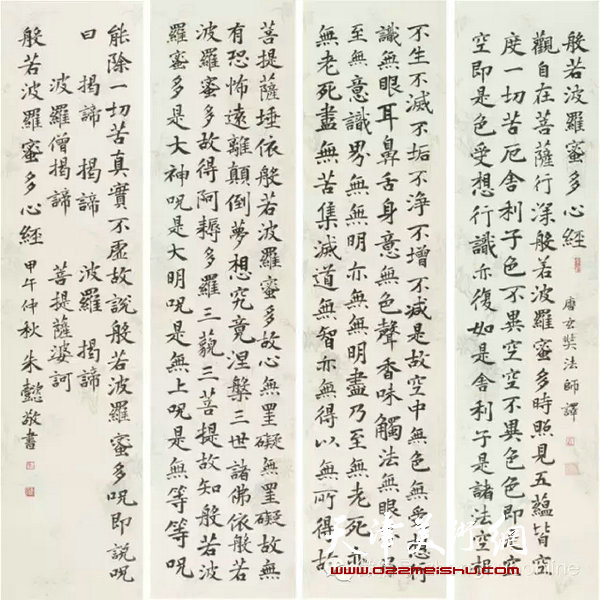 般若波羅蜜多心經
唐玄奘法師譯
觀自在菩薩行深般若波羅蜜多時照見五蘊皆空
度一切苦厄舍利子色不異空空不異色色即是空
空即是色受想行識亦復如是舍利子是諸法空相
不生不滅不垢不淨不增不減是故空中無色無受想行
識無眼耳鼻舌身意無色聲香味觸法無眼界
至無意識界無無明亦無無明盡乃至無老死亦
無老死盡無苦集滅道無智亦無得以無所得故
菩提薩埵依般若波羅蜜多故心無罣礙無罣礙故無
有恐怖遠離顛倒夢想究竟涅槃三世諸佛依般若
波羅蜜多故得阿耨多羅三藐三菩提故知般若波
羅蜜多是大神咒是大明咒是無上咒是無等等咒
能除一切苦真實不虛故說般若波羅蜜多咒即說咒
曰 揭諦 揭諦 波羅 揭諦
波羅僧揭諦 菩提薩婆訶
般若波羅蜜多心經 甲午仲秋 朱懿敬書
天津美術網
www.022meishu.com